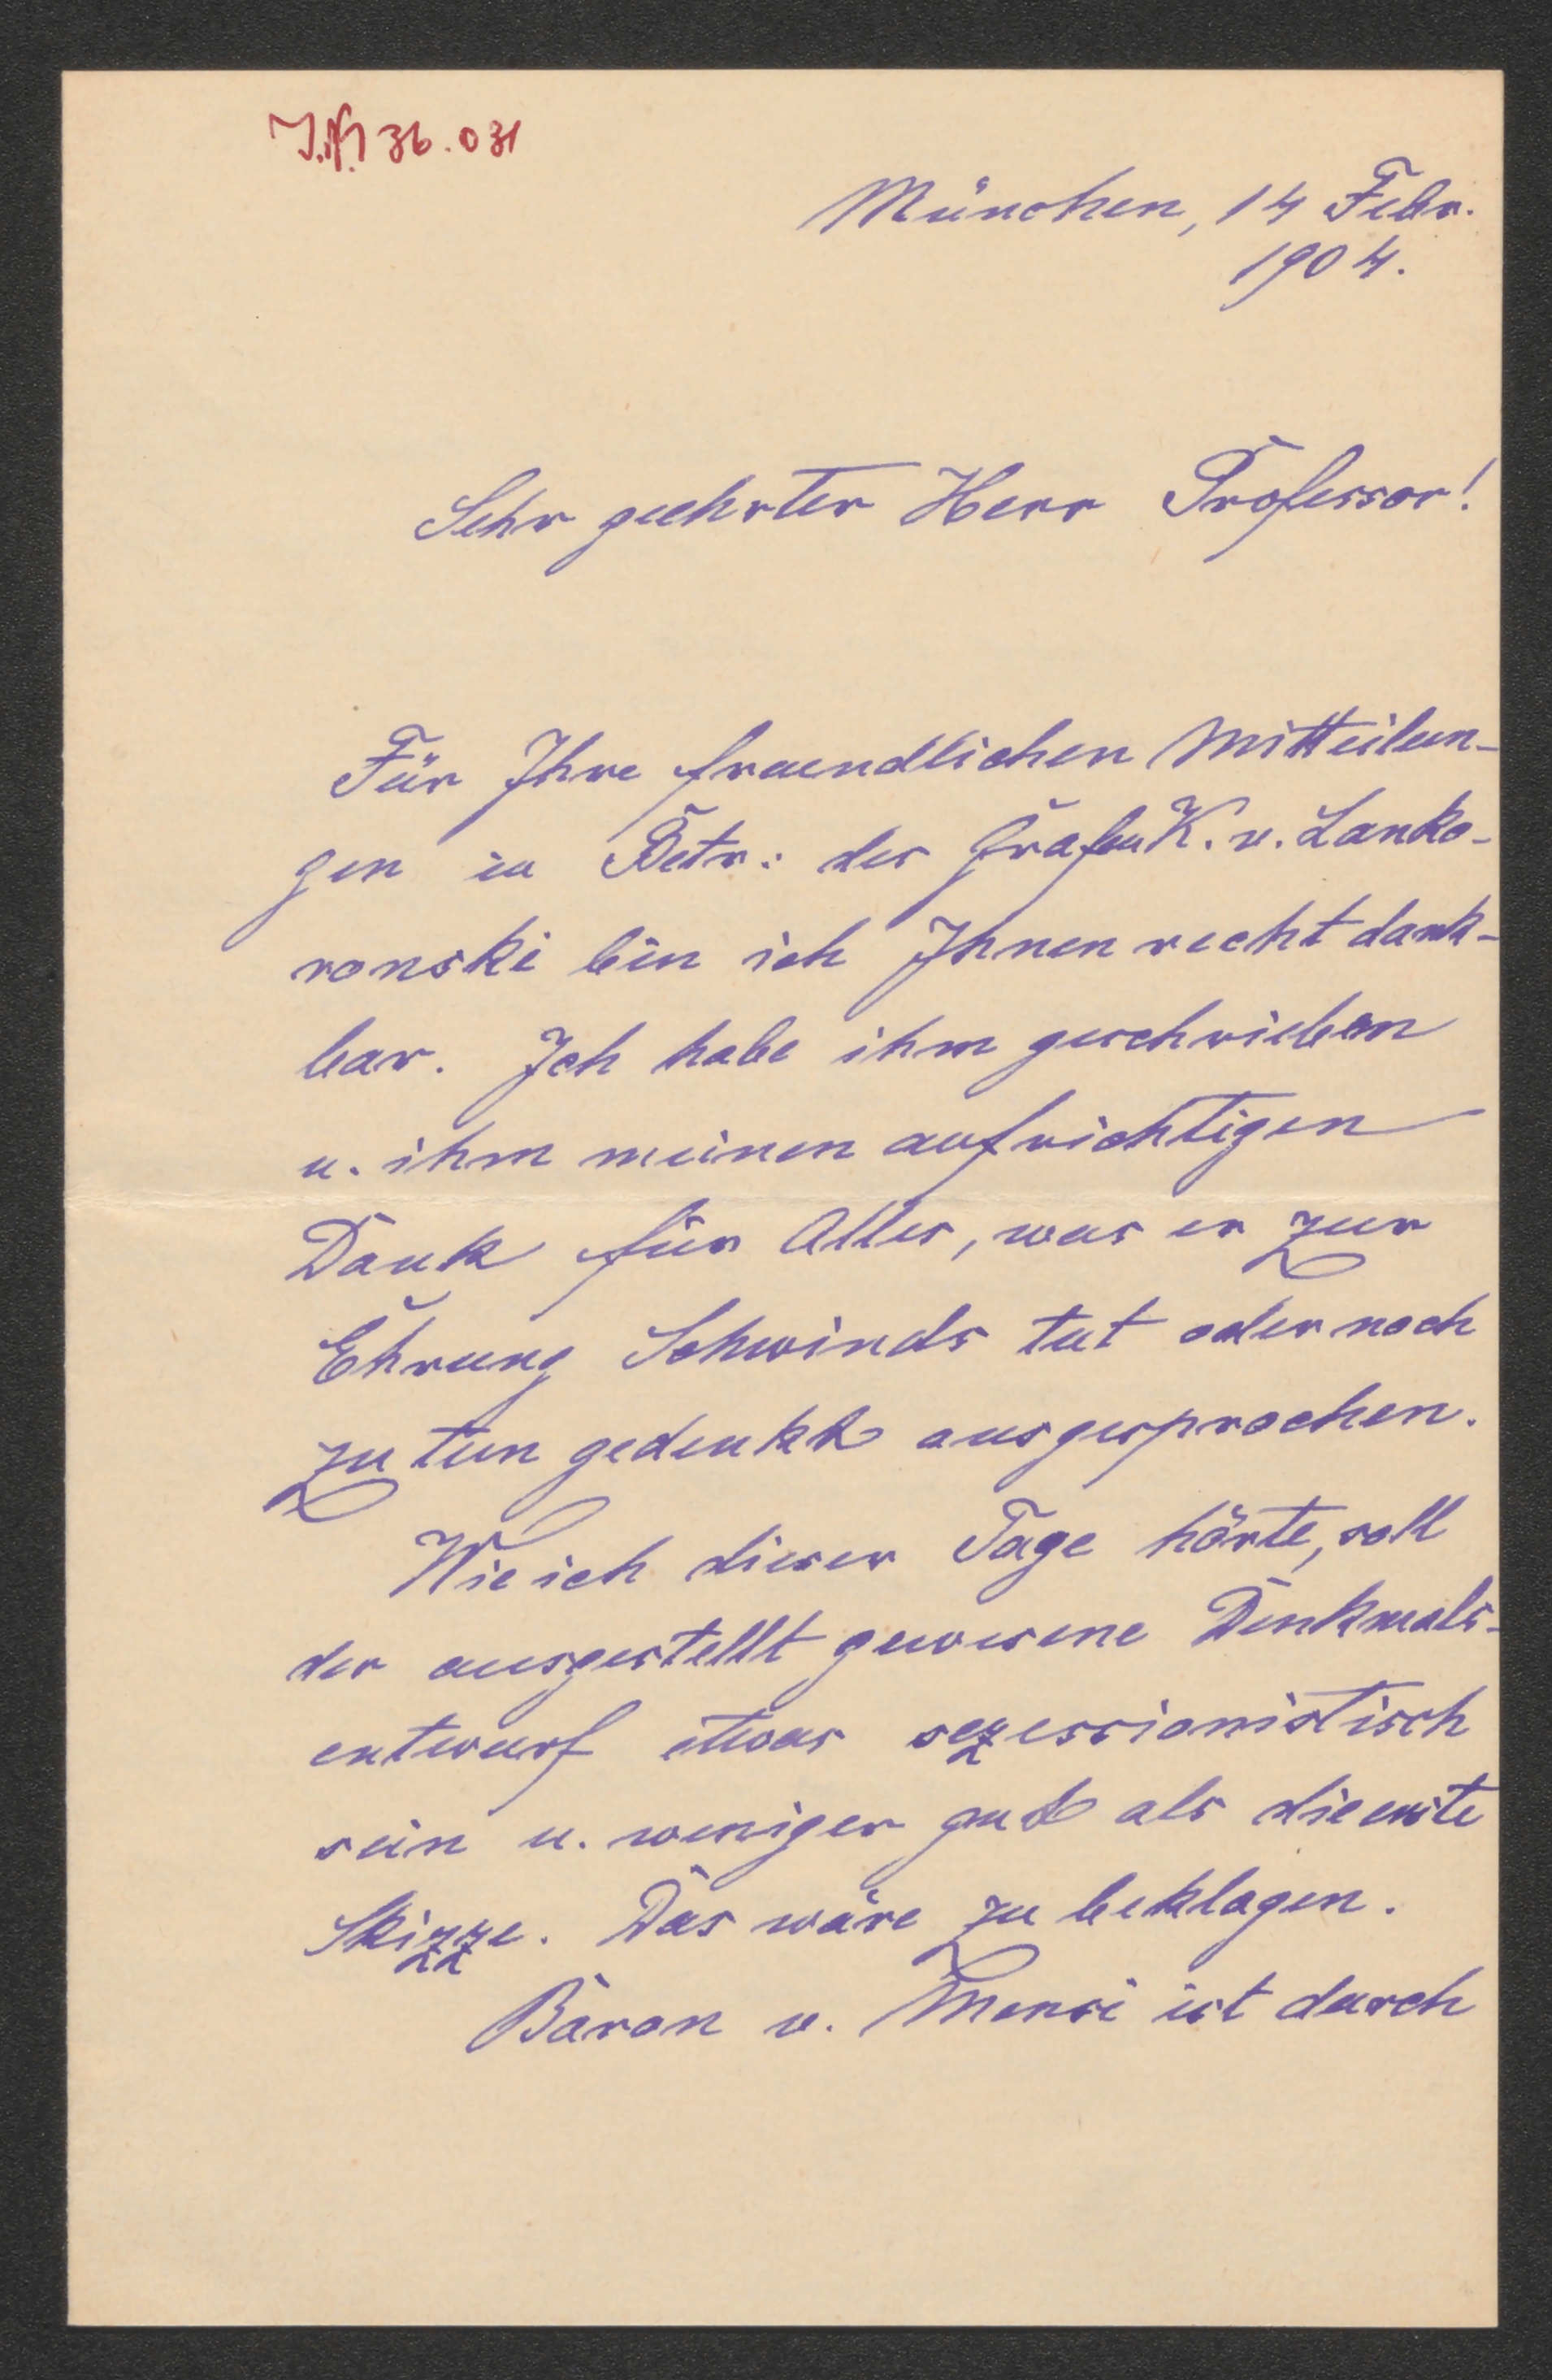 J.N. 36.031
München, 14 Febr.
1904.
Sehr geehrter Herr Professor!
Für Ihre freundlichen Mitteilun-
gen in Betr: des Grafen K. v. Lanko-
ronski bin ich Ihnen recht dank-
bar. Ich habe ihm geschrieben
u. ihm meinen aufrichtigen
Dank für Alles, was er zur
Ehrung Schwinds tut oder noch
zu tun gedenkt ausgesprochen.
Wie ich dieser Tage hörte, soll
der ausgestellt gewesene Denkmals-
entwurf etwas sezessionistisch
sein u. weniger gut als die erste
Skizze. Das wäre zu beklagen.
Baron v. Mensi ist durch